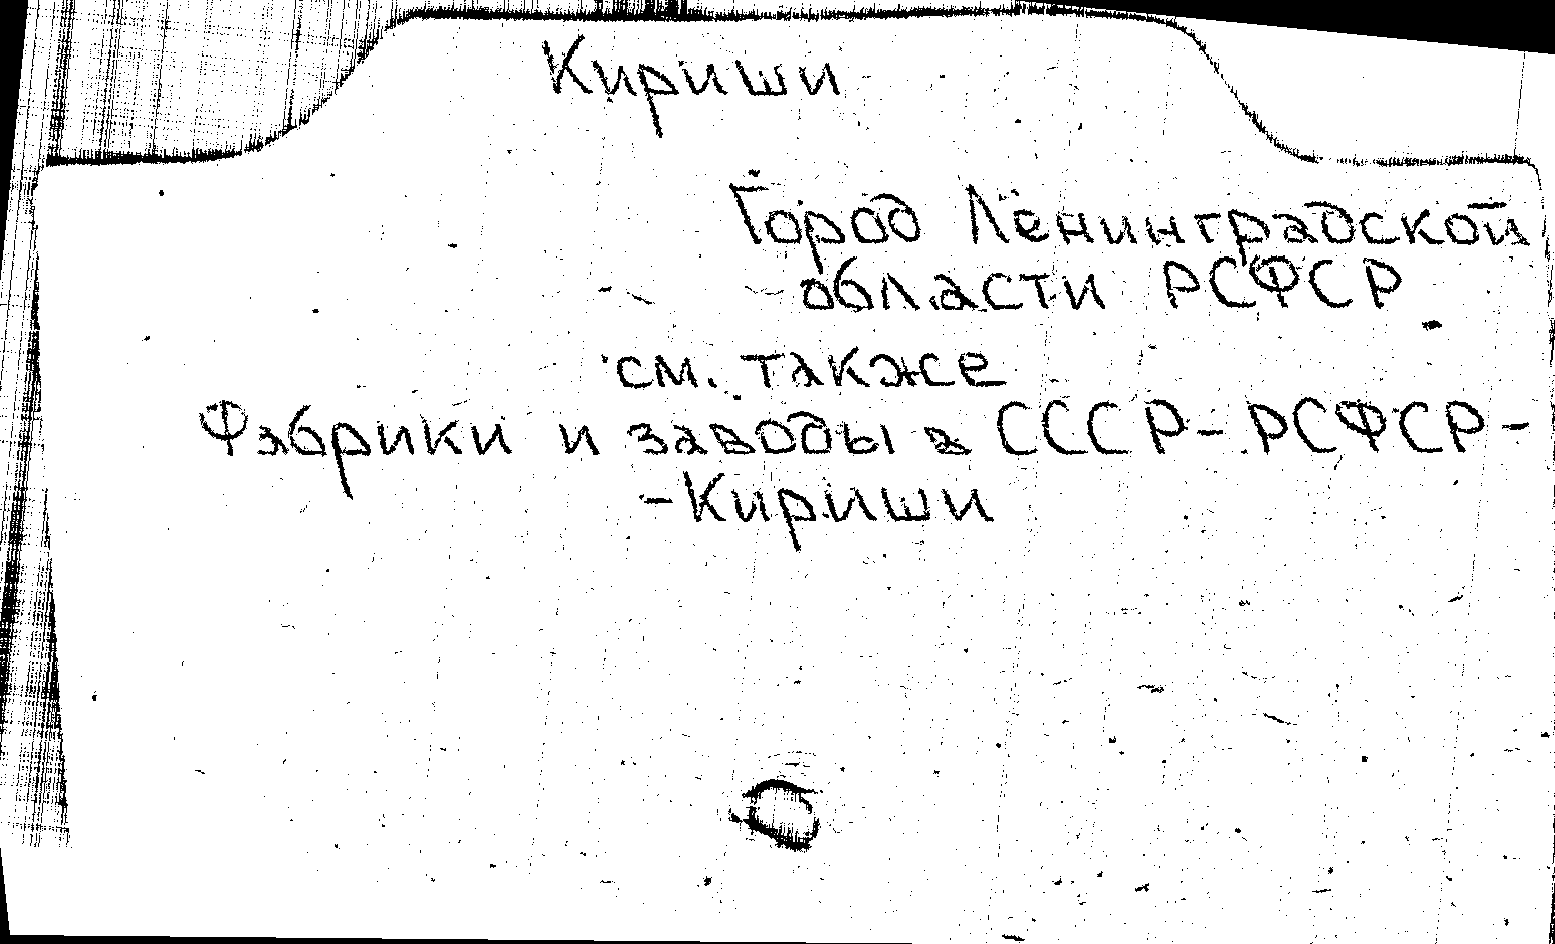 Кириши
Город Ленинградской
области РСФСР
см. также
Фабрики и заводы в СССР - РСФСР -
- Кириши